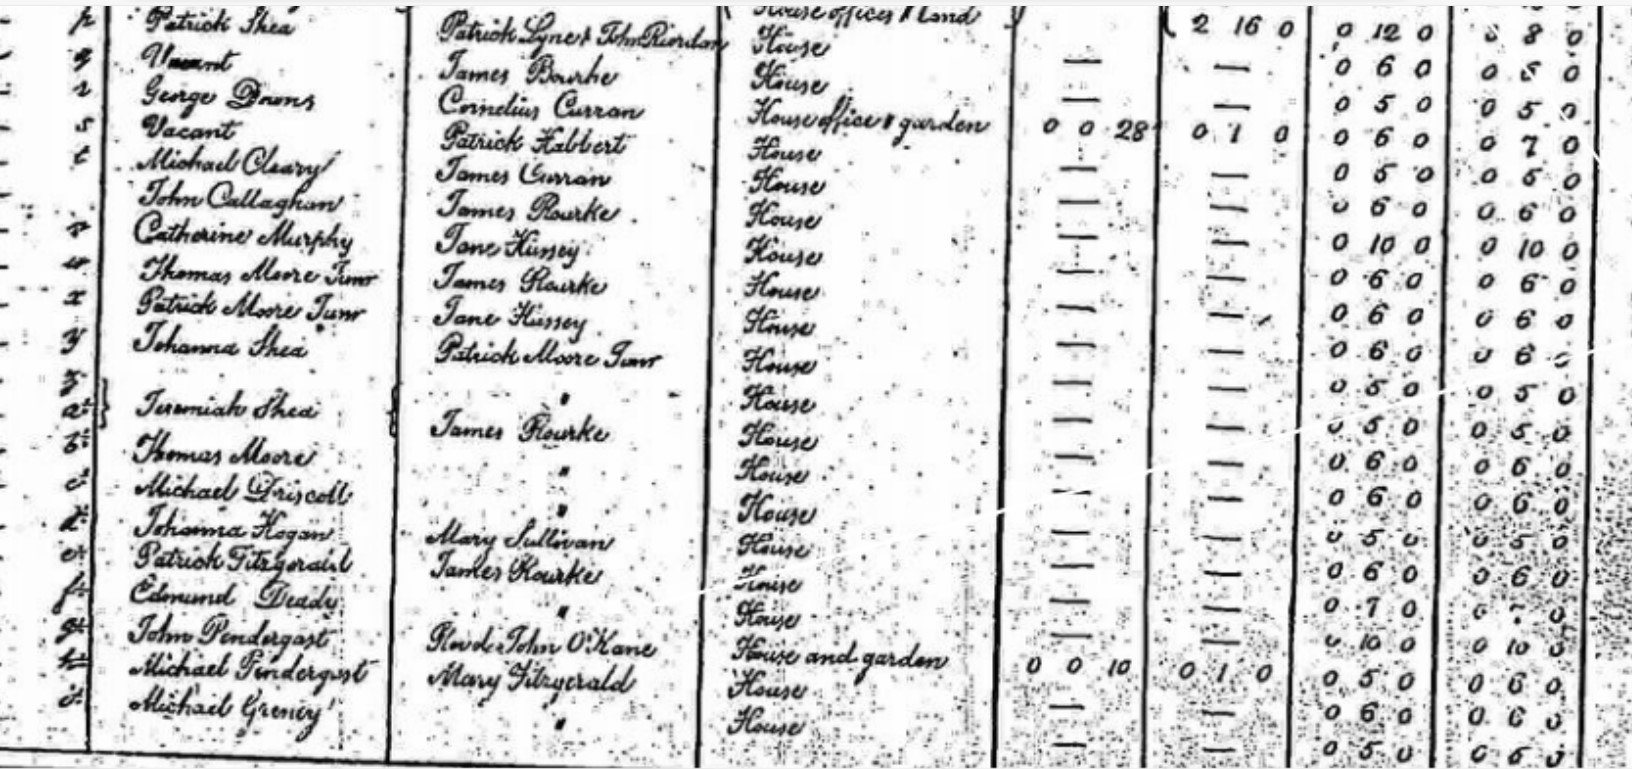 House offices & land 2 16 0 0 12 0 0 8 0
p Patrick Shea Patrick Lyne & John Riordan House — — 0 6 0 0 5 0
q Vacant James Bourke House — — 0 5 0 0 5 0
r George Downs Cornelius Curran House office & garden 0 0 28 0 1 0 0 6 0 0 7 0
s Vacant Patrick Habbert House — — 0 5 0 0 5 0
t Michael Cleary James Curran House — — 0 6 0 0 6 0
John Callaghan James Rourke House — — 0 10 0 0 10 0
v Catherine Murphy Jane Hussey House — — 0 6 0 0 6 0
w Thomas Moore Junr James Rourke House — — 0 6 0 0 6 0
x Patrick Moore Junr Jane Hussey House — — 0 6 0 0 6 0
y Johanna Shea Patrick Moore Junr House — — 0 5 0 0 5 0
z Jeremiah Shea " House — — 0 5 0 0 5 0
a² James Rourke House — — 0 6 0 0 6 0
b² Thomas Moore " House — — 0 6 0 0 6 0
c² Michael Driscoll " House — — 0 5 0 0 5 0
d² Johanna Hogan Mary Sullivan House — — 0 6 0 0 6 0
e² Patrick Fitzgerald James Rourke House — — 0 7 0 0 0
f² Edmund Deady " House — — 0 10 0 0 10 0
g² John Pendergast Revd. John O'Kane House and garden 0 0 10 0 1 0 0 5 0 0 6 0
h² Michael Pendergast Mary Fitzgerald House — — 0 6 0 0 6 0
Michael Greney " House — — 0 5 0 0 6 0